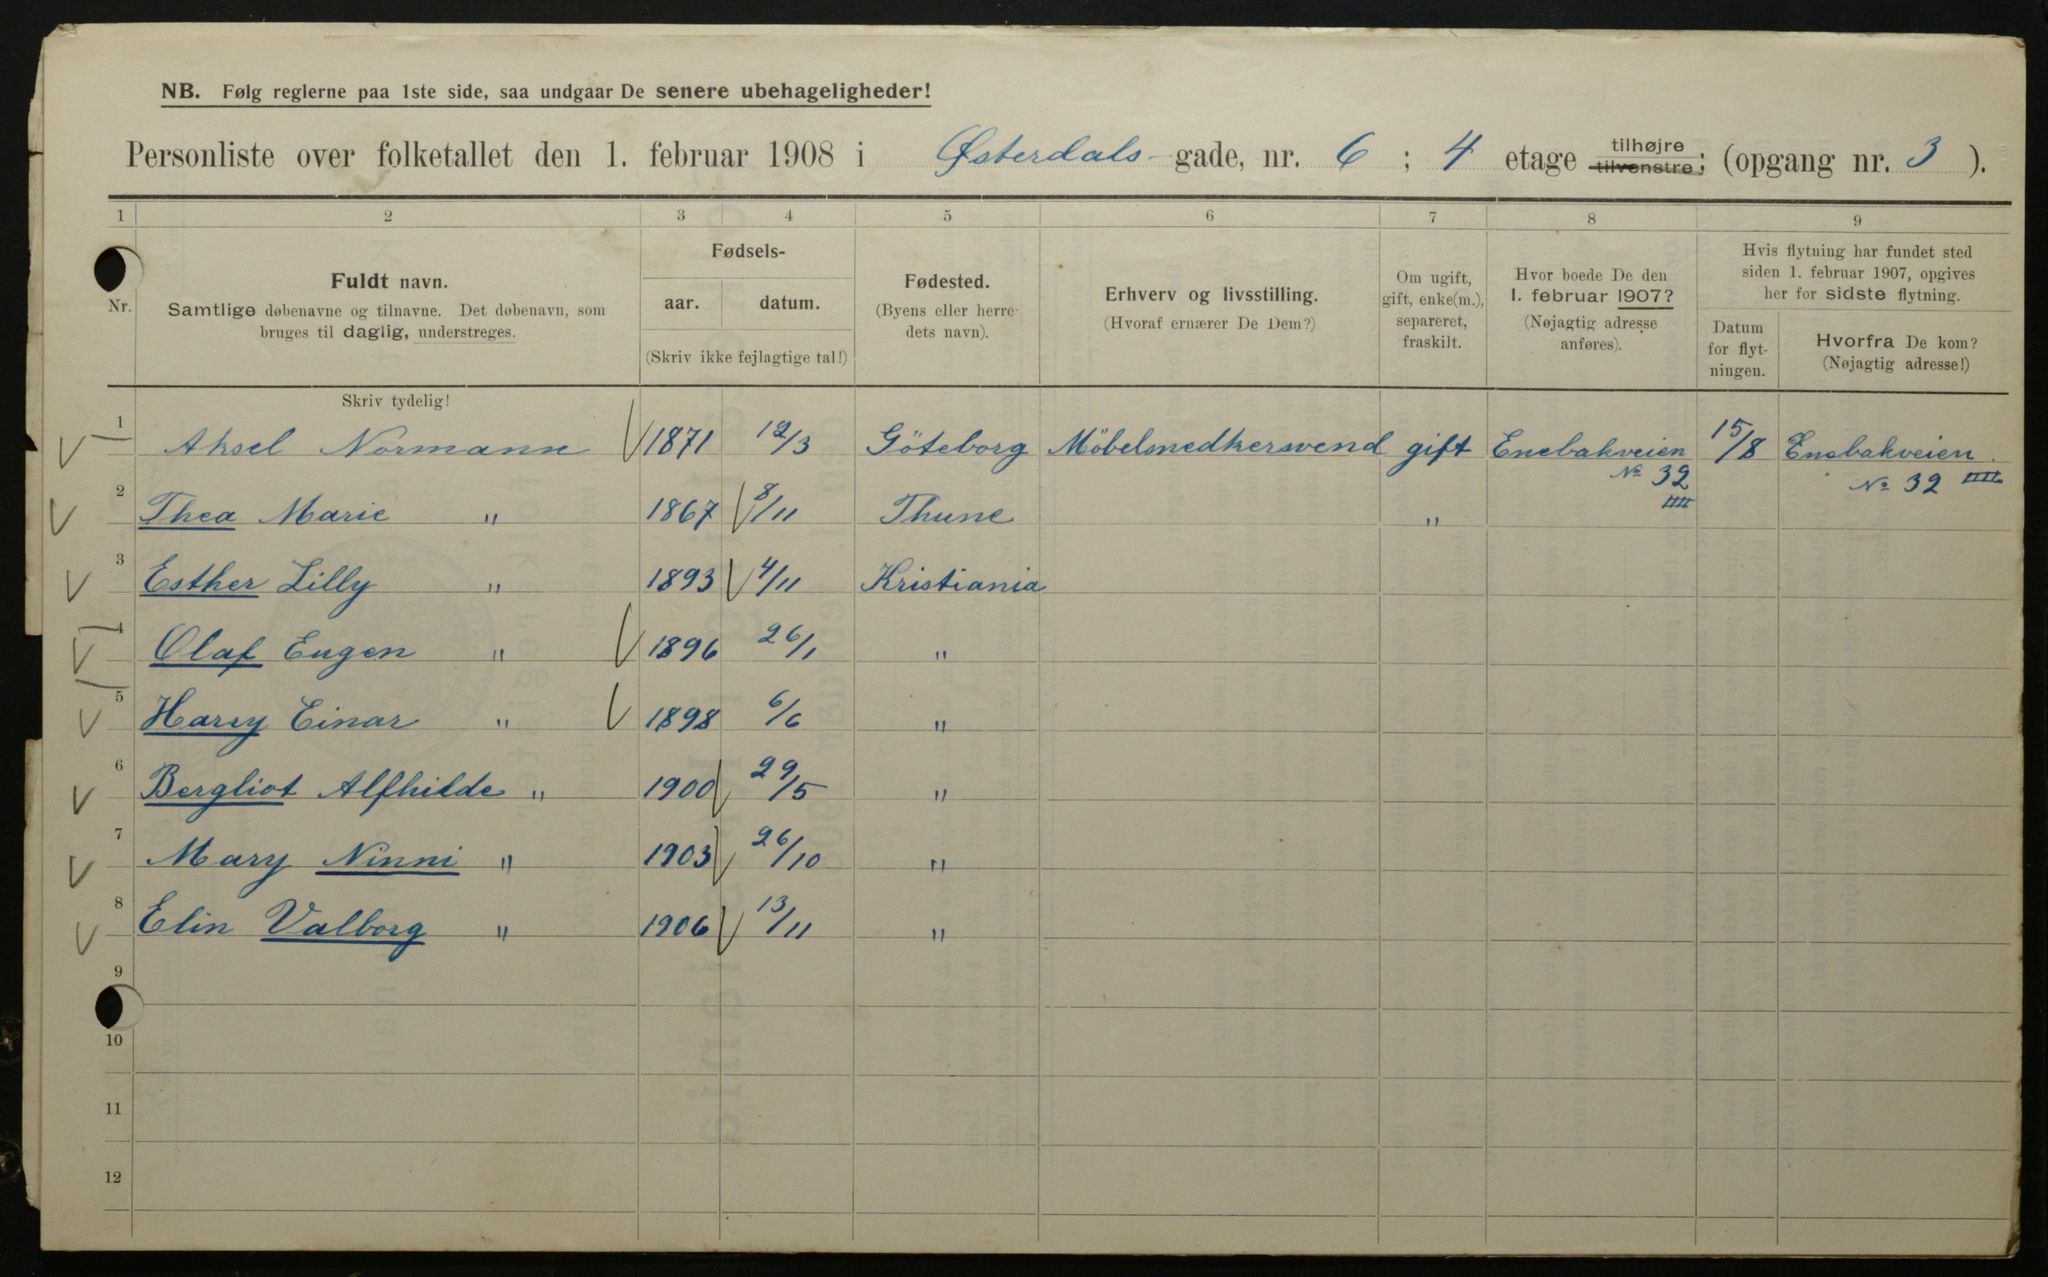 NB. Følg reglerne paa 1ste side, saa undgaar De senere ubehageligheder!
Personliste over folketallet den 1. februar 1908 i Østerdals gade, nr. 6 ; 4 etage tilhøjre tilvenstre; (opgang nr. 3 ).
1 2 3 4 5 6 7 8 9
Nr.
Fuldt navn.
Samtlige døbenavne og tilnavne. Det døbenavn, som
bruges til daglig, understreges.
Fødsels-
aar. datum.
(Skriv ikke fejlagtige tal!)
Fødested.
(Byens eller herre-
dets navn).
Erhverv og livsstilling.
(Hvoraf ernærer De Dem?)
Om ugift,
gift, enke(m.),
separeret,
fraskilt.
Hvor boede De den
1. februar 1907?
(Nøjagtig adresse
anføres).
Hvis flytning har fundet sted
siden 1. februar 1907, opgives
her for sidste flytning.
Datum
for flyt-
ningen.
Hvorfra De kom?
(Nøjagtig adresse!)
Skriv tydelig!
1 Aksel Normann 1871 12/3 Göteborg Möbelsnedkersvend gift Enebakveien 15/8 Enebakveien.
No 32 No 32 IIII
IIII
2 Thea Marie " 1867 8/11 Thune "
3 Esther Lilly " 1893 4/11 Kristiania
4 Olaf Eugen " 1896 26/1 "
5 Harry Einar " 1898 6/6 "
6 Bergliot Alfhilde " 1900 29/5 "
7 Mary Ninni " 1903 26/10 "
8 Elin Valborg " 1906 13/11 "
9
10
11
12